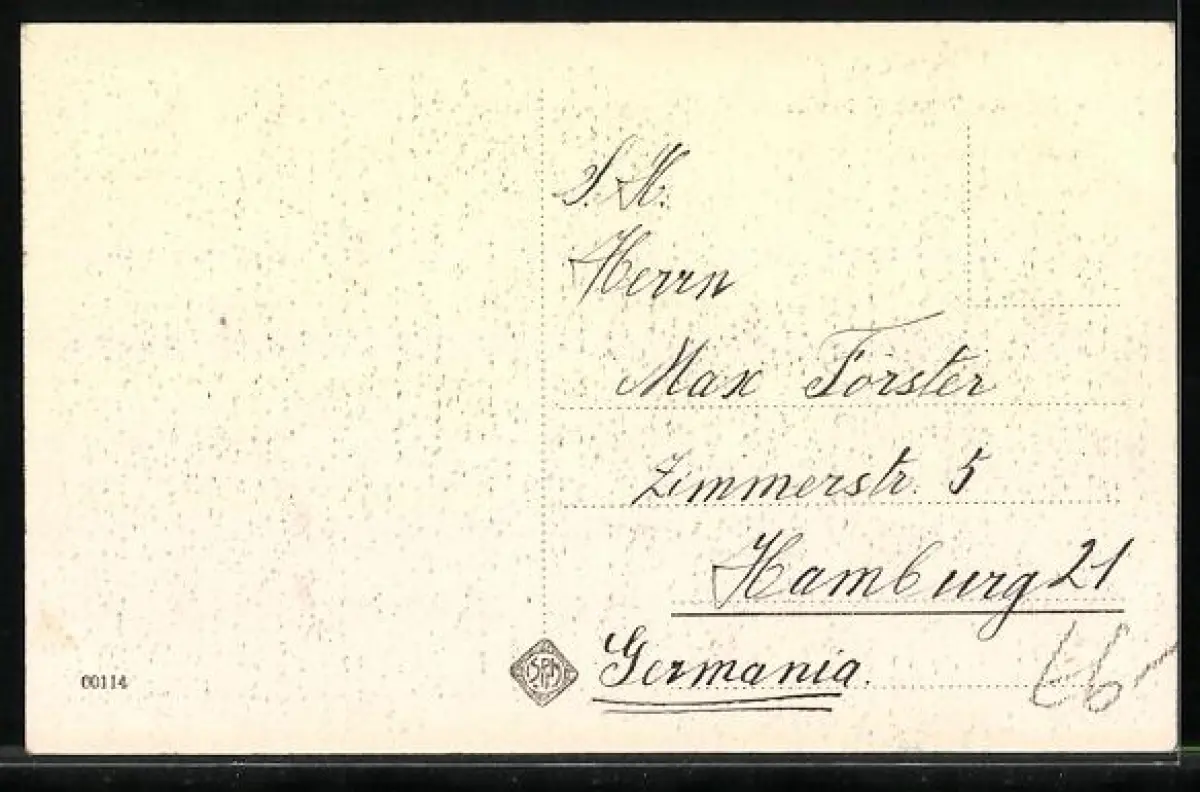 S. H.
Herrn
Max Förster
Zimmerstr. 5
Hamburg 21
Germania.
00114